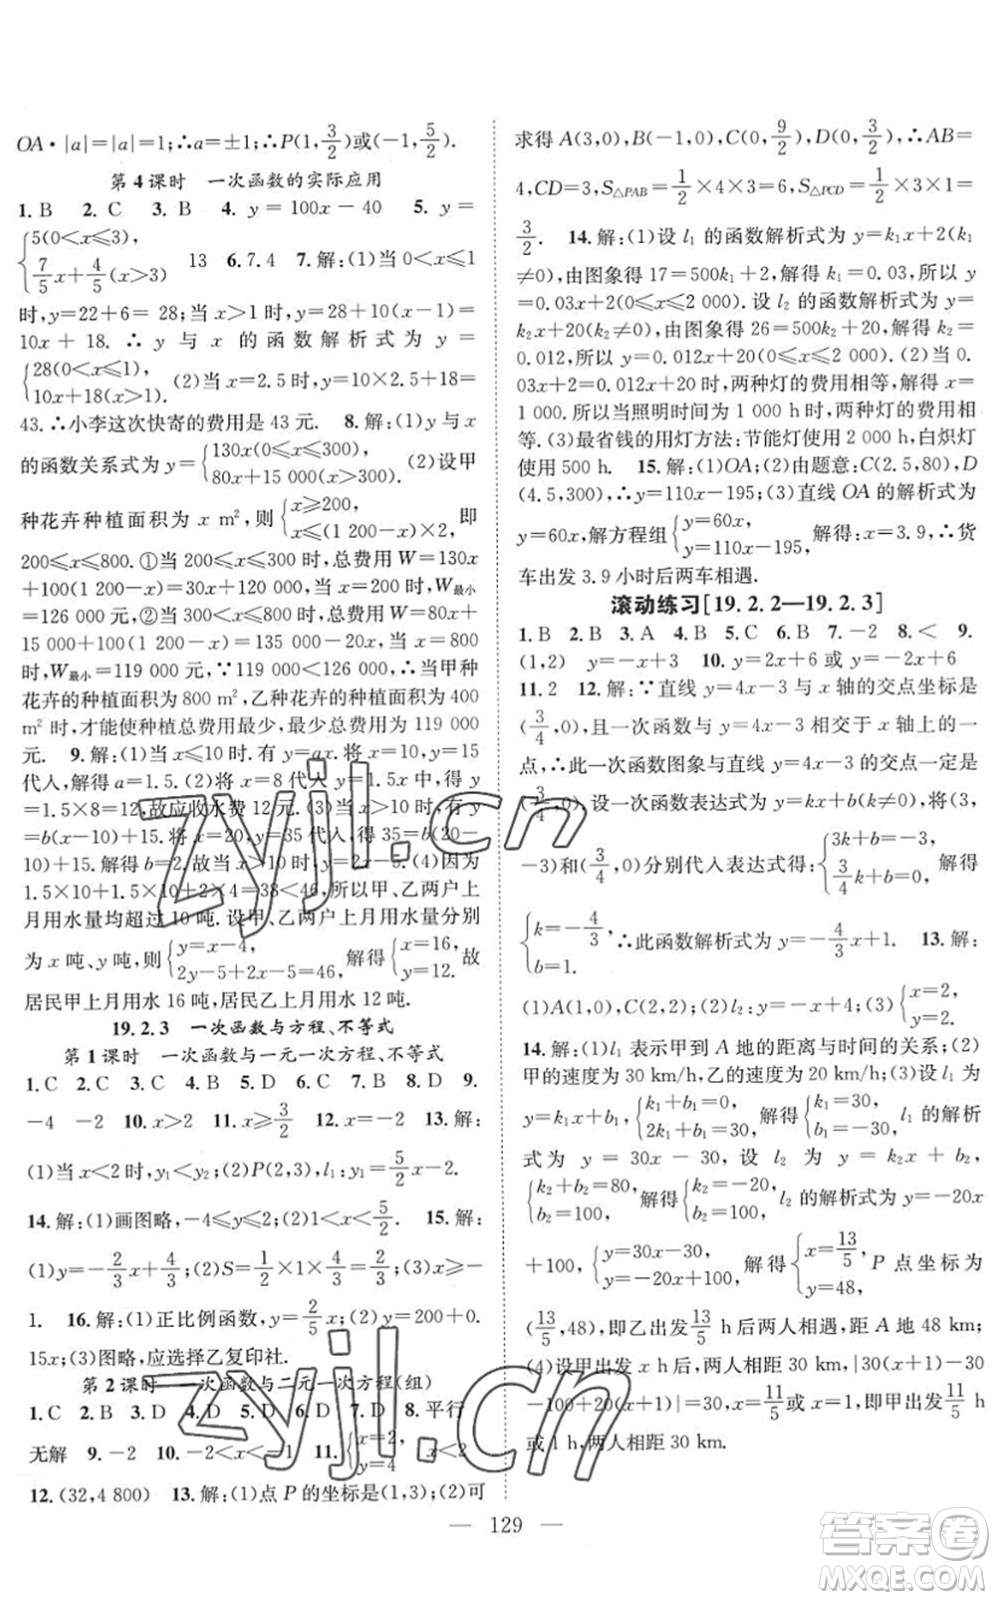 OA·|a|=|a|=1;∴a=±1;∴P(1,3/2)或(-1,5/2).
第4课时 一次函数的实际应用
1. B 2. C 3. B 4. y=100x-40 5. y=
{5(0<x≤3), 7/5x+4/5(x>3) 13 6. 7.4 7. 解:(1)当0<x≤1
时,y=22+6=28;当x>1时,y=28+10(x-1)=
10x+18. ∴y与x的函数解析式为y=
{28(0<x≤1), 10x+18(x>1) (2)当x=2.5时,y=10×2.5+18=
43.∴小李这次快寄的费用是43元. 8. 解:(1)y与x
的函数关系式为y={130x(0≤x≤300), 80x+15 000(x>300) (2)设甲
种花卉种植面积为x m²,则{x≥200, x≤(1 200-x)×2, 即
200≤x≤800.①当200≤x≤300时,总费用W=130x
+100(1 200-x)=30x+120 000.当x=200时,W最小
=126 000;②当300<x≤800时,总费用W=80x+
15 000+100(1 200-x)=-20x+135 000.当x=800
时,W最小=119 000元,∵119 000<126 000,∴当甲种
花卉的种植面积为800 m²,乙种花卉的种植面积为400
m²时,才能使种植总费用最少,最少总费用为119 000
元. 9. 解:(1)当x≤10时,有y=ax.将x=10,y=15
代入,解得a=1.5.(2)将x=8代入y=1.5x中,得y
=1.5×8=12,故应收水费12元.(3)当x>10时,有y
=b(x-10)+15.将x=20,y=35代入得35=b(20-
10)+15.解得b=2.故当x>10时,y=2x-5.(4)因为
1.5×10+1.5×10+2×4=38<46,所以甲、乙两户上
月用水量均超过10吨.设甲、乙两户上月用水量分别
为x吨、y吨,则{y=x-4, 2y-5+2x-5=46, 解得{x=16, y=12. 故
居民甲上月用水16吨,居民乙上月用水12吨.
19.2.3 一次函数与方程、不等式
第1课时 一次函数与一元一次方程、不等式
1. C 2. C 3. B 4. D 5. D 6. C 7. D 8. B 9.
-4 -2 10. x>2 11. x≥3/2 12. x=-2 13. 解:
(1)当x<2时,y₁<y₂;(2)P(2,3),l:y=5/2x-2.
14. 解:(1)画图略,-4≤y≤2;(2)1<x<5/2. 15. 解:
(1)y=-2/3x+4/3;(2)S=1/2×1×4/3=2/3;(3)x≥-
1. 16. 解:(1)正比例函数,y=2/5x;(2)y=200+0.
15x;(3)图略,应选择乙复印社.
第2课时 一次函数与二元一次方程(组)
1. C 2. B 3. D 4. D 5. D 6. D 7. B 8. 平行
无解 9. -2 10. -2<x<-1 11. {x=2, y=4 x<2
12. (32,4 800) 13. 解:(1)点P的坐标是(1,3);(2)可
求得A(3,0),B(-1,0),C(0,9/2),D(0,3/2),∴AB=
4,CD=3,S△PAB=1/2×4×3=6,S△PCD=1/2×3×1=
3/2. 14. 解:(1)设l₁的函数解析式为y=k₁x+2(k₁
≠0),由图象得17=500k₁+2,解得k₁=0.03,所以y
=0.03x+2(0≤x≤2 000).设l₂的函数解析式为y=
k₂x+20(k₂≠0),由图象得26=500k₂+20,解得k₂=
0.012,所以y=0.012x+20(0≤x≤2 000).(2)当0.
03x+2=0.012x+20时,两种灯的费用相等,解得x=
1 000.所以当照明时间为1 000 h时,两种灯的费用相
等.(3)最省钱的用灯方法:节能灯使用2 000 h,白炽灯
使用500 h. 15. 解:(1)OA;(2)由题意:C(2.5,80),D
(4.5,300),∴y=110x-195;(3)直线OA的解析式为
y=60x,解方程组{y=60x, y=110x-195, 解得:x=3.9,∴货
车出发3.9小时后两车相遇.
滚动练习[19.2.2—19.2.3]
1. B 2. B 3. A 4. B 5. C 6. B 7. -2 8. < 9.
(1,2) y=-x+3 10. y=2x+6或y=-2x+6
11. 2 12. 解:∵直线y=4x-3与x轴的交点坐标是
(3/4,0),且一次函数与y=4x-3相交于x轴上的一
点,∴此一次函数图象与直线y=4x-3的交点一定是
(3/4,0),设一次函数表达式为y=kx+b,将(3,
-3)和(3/4,0)分别代入表达式得:{3k+b=-3, 3/4k+b=0, 解得
{k=-4/3, b=1. ∴此函数解析式为y=-4/3x+1. 13. 解:
(1)A(1,0),C(2,2);(2)l₂:y=-2x+6;(3){x=2, y=2.
14. 解:(1)l₁表示甲到A地的距离与时间的关系;(2)
甲的速度为30 km/h,乙的速度为20 km/h;(3)设l₁为
y=k₁x+b₁,{k₁+b₁=0, 2k₁+b₁=30, 解得{k₁=30, b₁=-30, l₁的解析
式为y=30x-30,设l₂为y=k₂x+b₂,
{k₂+b₂=80, b₂=100, 解得{k₂=-20, b₂=100, l₂的解析式为y=-20x
+100,{y=30x-30, y=-20x+100, 解得{x=13/5, y=48, P点坐标为
(13/5,48),即乙出发13/5 h后两人相遇,距A地48 km;
(4)设甲出发x h后,两人相距30 km,|30(x+1)-30
-100+20(x+1)|=30,x=11/5或x=1,即甲出发11/5 h
或1 h,两人相距30 km.
129
zyjl.cn
zyjl.cn
答案圈
MXQE.COM